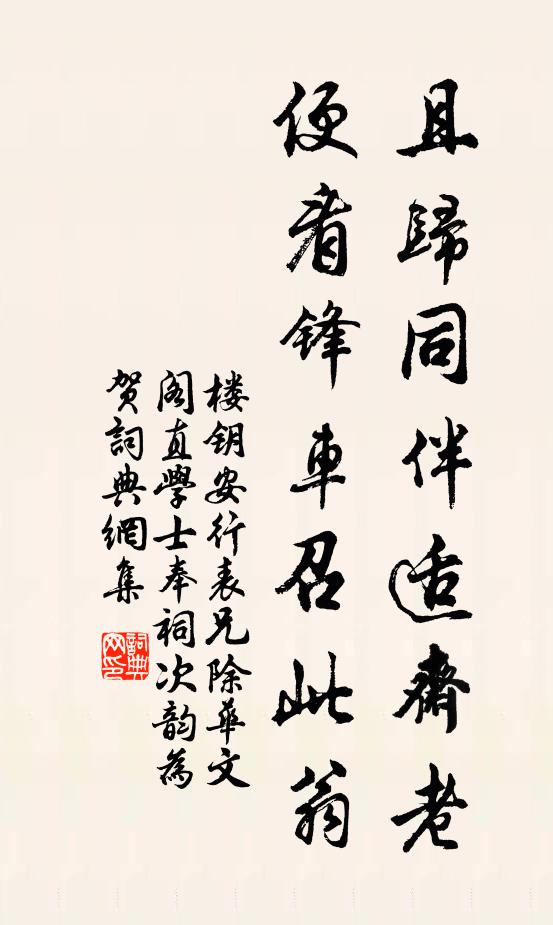 且歸同伴适齋老
便看鋒車召此翁
楼钥安行表兄除華文
阁直學士奉祠次韵為
贺詞典網集